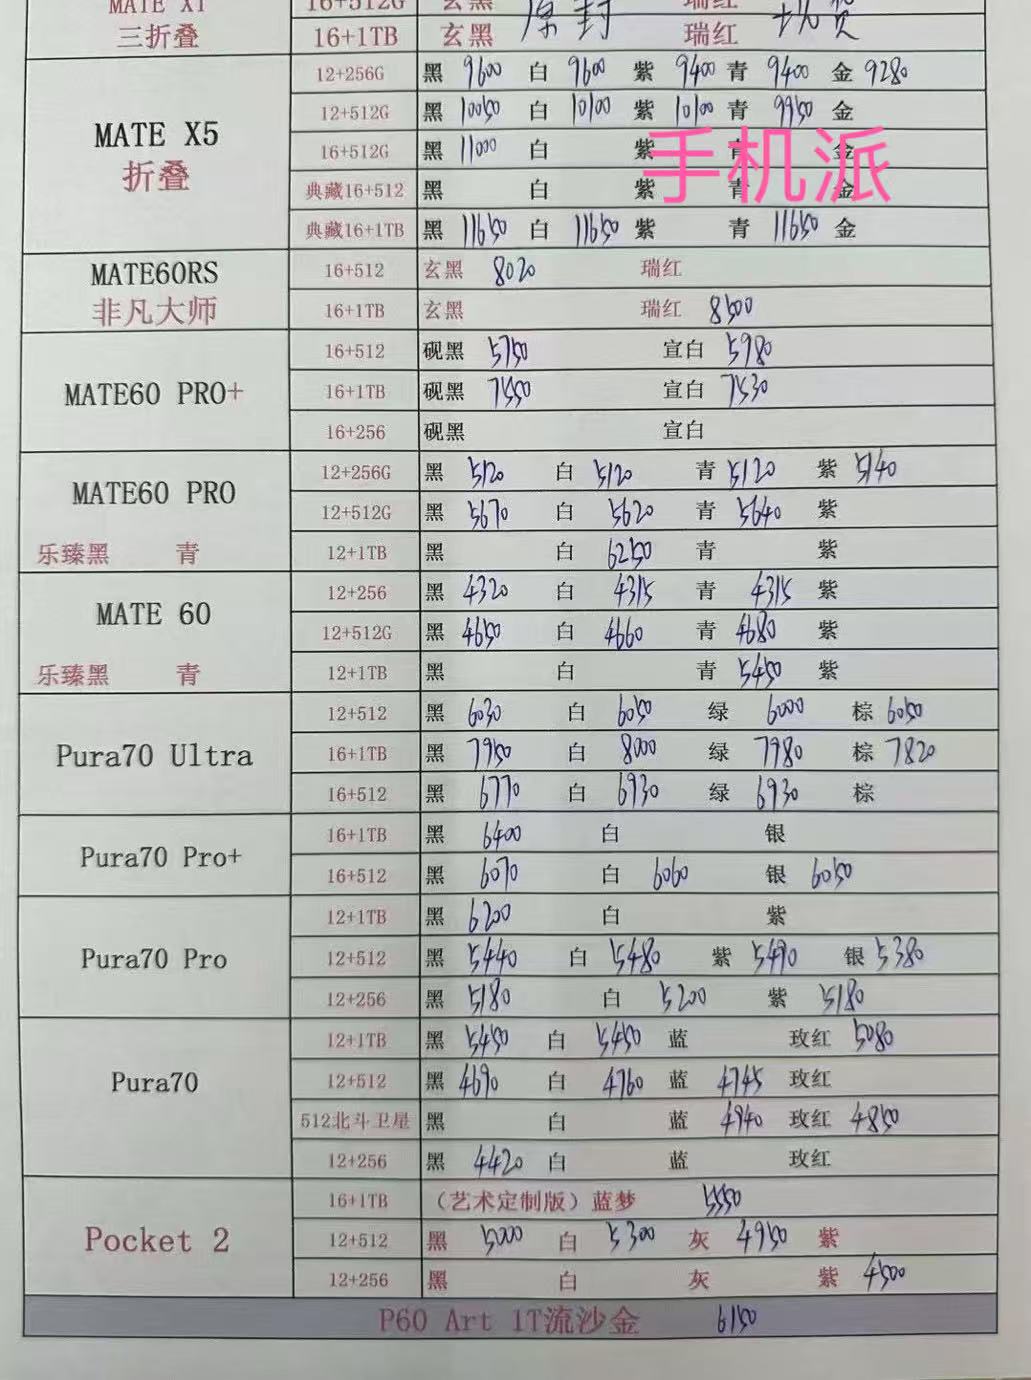 MATE XT 16+512G 玄黑 原封 瑞红
三折叠 16+1TB 玄黑 瑞红
12+256G 黑 9600 白 9600 紫 9400 青 9400 金 9280
12+512G 黑 10050 白 10100 紫 10100 青 9950 金
MATE X5
16+512G 黑 11000 白 紫 青 金
手机派
折叠
典藏16+512 黑 白 紫 青 金
典藏16+1TB 黑 11650 白 11650 紫 青 11650 金
MATE60RS 16+512 玄黑 8020 瑞红
非凡大师 16+1TB 玄黑 瑞红 8500
16+512 砚黑 5750 宣白 5980
MATE60 PRO+ 16+1TB 砚黑 7550 宣白 7530
16+256 砚黑 宣白
12+256G 黑 5120 白 5120 青 5120 紫 5140
MATE60 PRO 12+512G 黑 5670 白 5620 青 5640 紫
乐臻黑 青 12+1TB 黑 白 6250 青 紫
12+256 黑 4320 白 4315 青 4315 紫
MATE 60 12+512G 黑 4650 白 4660 青 4680 紫
乐臻黑 青 12+1TB 黑 白 青 5450 紫
12+512 黑 6030 白 6050 绿 6000 棕 6050
Pura70 Ultra 16+1TB 黑 7950 白 8000 绿 7980 棕 7820
16+512 黑 6770 白 6930 绿 6930 棕
16+1TB 黑 6400 白 银
Pura70 Pro+ 16+512 黑 6070 白 6060 银 6050
12+1TB 黑 6200 白 紫
Pura70 Pro 12+512 黑 5440 白 5480 紫 5490 银 5380
12+256 黑 5180 白 5200 紫 5180
12+1TB 黑 5450 白 5450 蓝 玫红 5080
Pura70 12+512 黑 4690 白 4760 蓝 4745 玫红
512北斗卫星 黑 白 蓝 4940 玫红 4850
12+256 黑 4420 白 蓝 玫红
16+1TB （艺术定制版）蓝梦 5550
Pocket 2 12+512 黑 5000 白 5300 灰 4950 紫
12+256 黑 白 灰 紫 4500
P60 Art 1T流沙金 6150